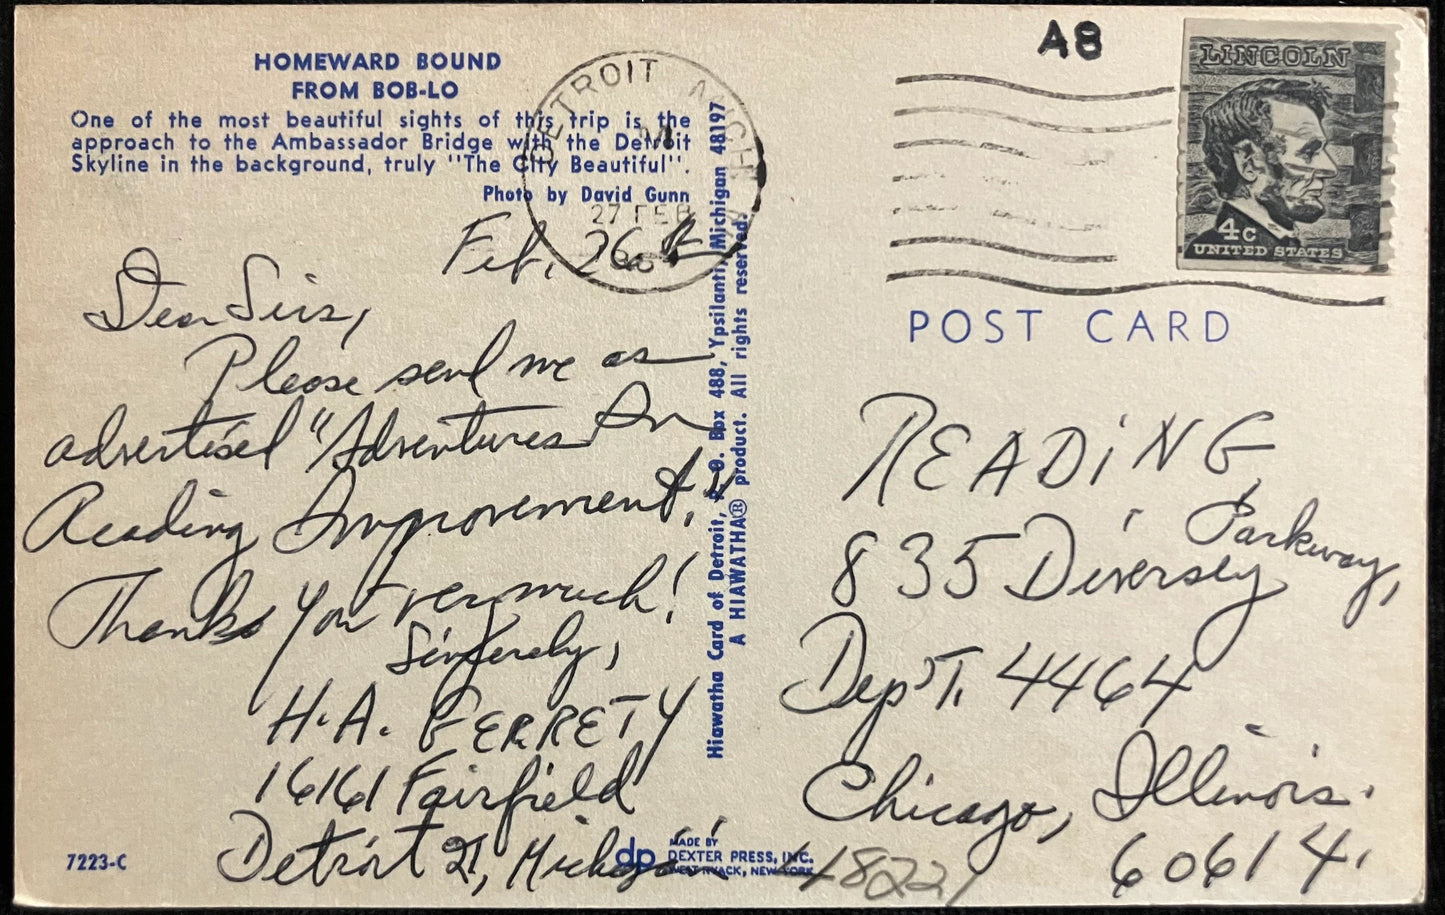 HOMEWARD BOUND
FROM BOB-LO
One of the most beautiful sights of this trip is the
approach to the Ambassador Bridge with the Detroit
Skyline in the background, truly "The City Beautiful".
Photo by David Gunn
DETROIT MICH
27 FEB
Feb. 26th
Dear Sirs,
Please send me as
advertised "Adventures In
Reading Improvement."
Thank You very much!
Sincerely,
H.A. GERRETY
16161 Fairfield
Detroit 21, Michigan
48221
7223-C
MADE BY
dp DEXTER PRESS, INC.
WEST NYACK, NEW YORK
Hiawatha Card of Detroit, P.O. Box 488, Ypsilanti, Michigan 48197
A HIAWATHA® product. All rights reserved.
A8
LINCOLN
4c
UNITED STATES
POST CARD
READING
835 Diversey Parkway,
Dep't. 4464
Chicago, Illinois.
60614.